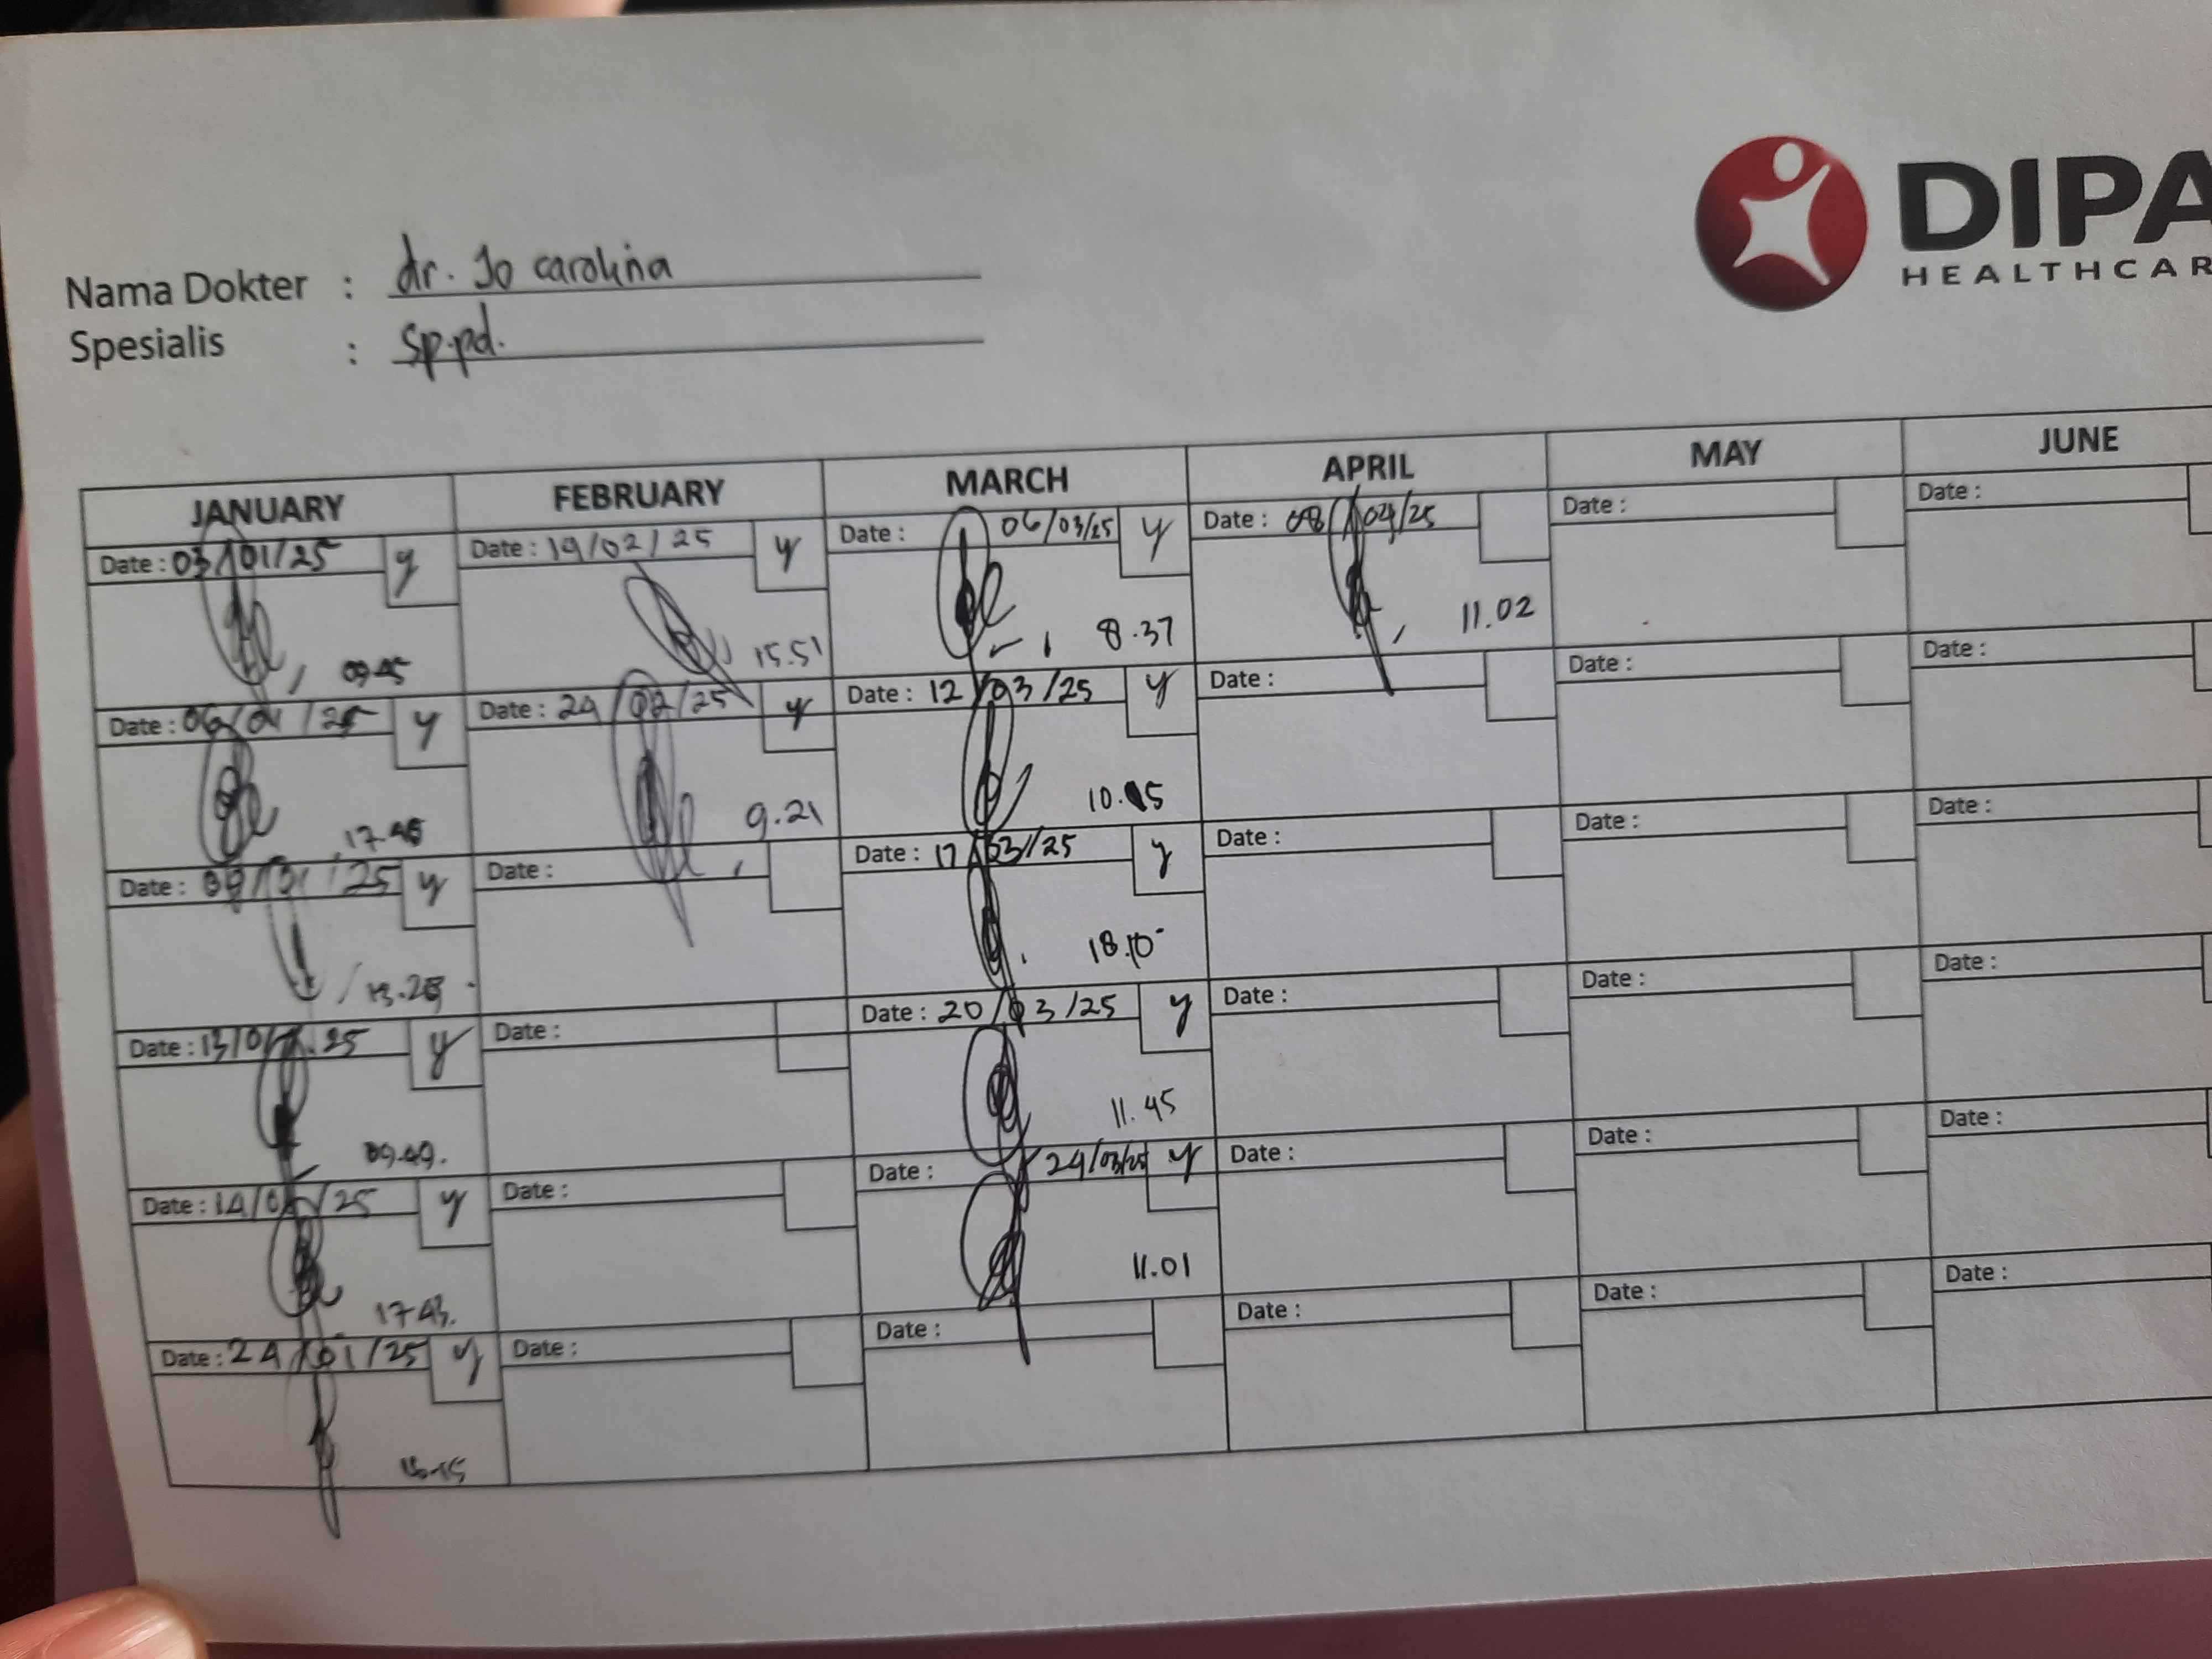 DIPA
HEALTHCAR
Nama Dokter : dr. Jo carolina
Spesialis : Sp.pd.
JANUARY FEBRUARY MARCH APRIL MAY JUNE
Date : 03/01/25 y Date : 19/02/25 y Date : 06/03/25 y Date : 08/04/25 Date : Date :
09.45 15.51 8.37 11.02
Date : 06/01/25 y Date : 24/02/25 y Date : 12/03/25 y Date : Date : Date :
9.21
Date : 09/01/25 y Date : Date : 17/03/25 y Date : Date : Date :
18.10
Date : 13/01/25 y Date : Date : 20/03/25 y Date : Date : Date :
09.49. 11.45
Date : y Date : Date : 24/03/25 y Date : Date : Date :
17.43. 11.01
Date : 24/01/25 y Date : Date : Date : Date : Date :